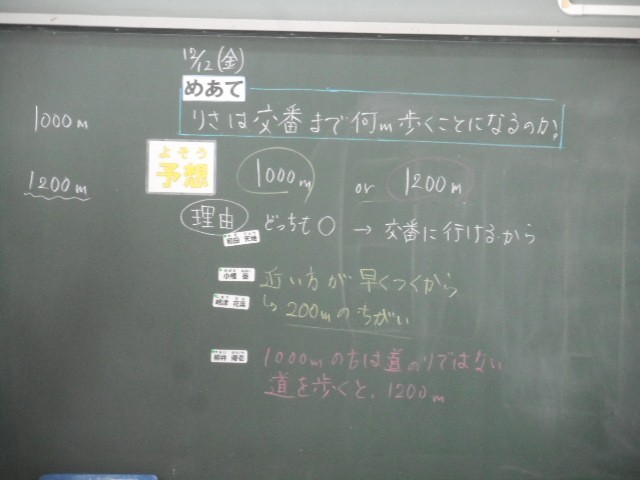 12/12(金)
めあて
りさは交番まで何m歩くことになるのか。
1000m
1200m
よそう
予想
1000m or 1200m
理由 どっちも○ → 交番に行けるから
近い方が早くつくから
↳ 200mのちがい
1000mの方は道のりではない
道を歩くと、1200m